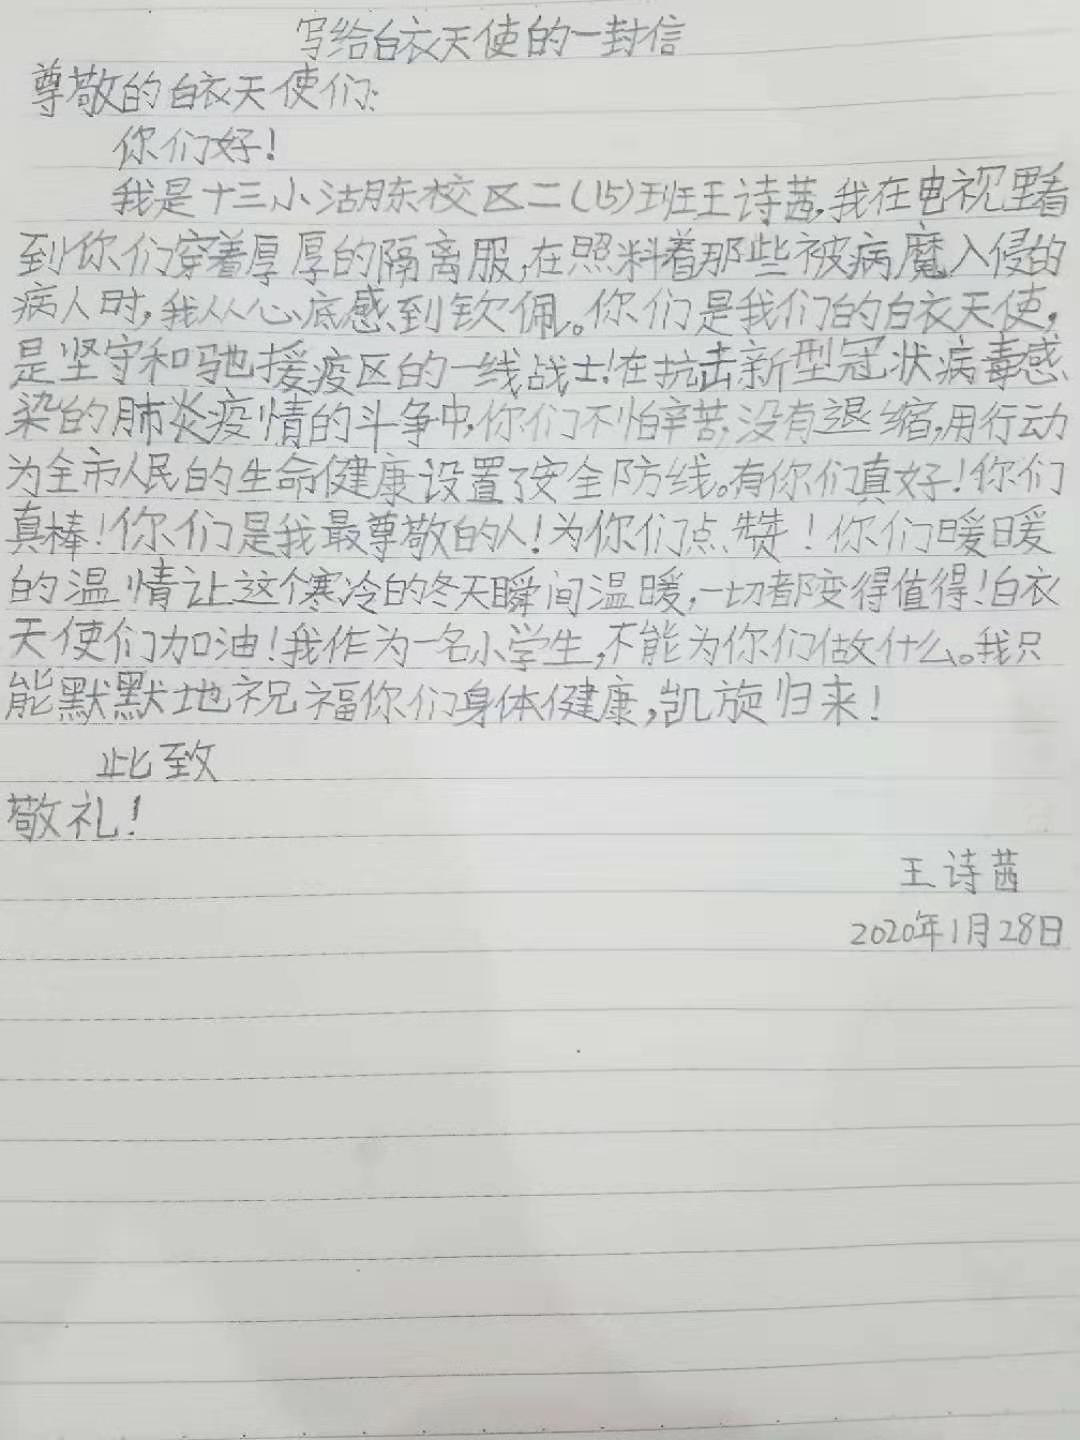 写给白衣天使的一封信
尊敬的白衣天使们:
你们好!
我是十三小湖东校区二(15)班王诗茜,我在电视里看
到你们穿着厚厚的隔离服,在照料着那些被病魔入侵的
病人时,我从心底感到钦佩。你们是我们的白衣天使,
是坚守和驰援疫区的一线战士!在抗击新型冠状病毒感
染的肺炎疫情的斗争中,你们不怕辛苦,没有退缩,用行动
为全市人民的生命健康设置了安全防线。有你们真好!你们
真棒!你们是我最尊敬的人!为你们点赞!你们暖暖
的温情让这个寒冷的冬天瞬间温暖,一切都变得值得!白衣
天使们加油!我作为一名小学生,不能为你们做什么。我只
能默默地祝福你们身体健康,凯旋归来!
此致
敬礼!
王诗茜
2020年1月28日